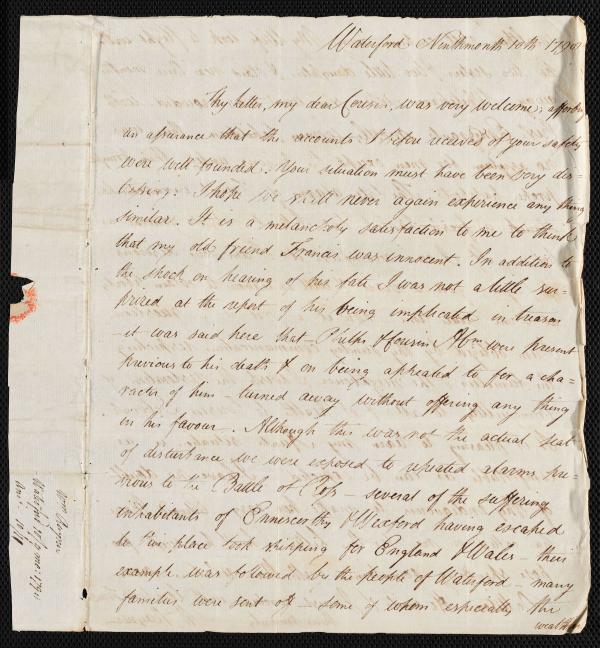 Waterford Ninthmonth 10th 1798
Thy letter, my dear Cousin, was very welcome; affording
an assurance that the accounts I before received of your safety
were well founded. Your situation must have been very dis=
tressing. I hope we shall never again experience any thing
similar. It is a melancholy satisfaction to me to think
that my old friend Francis was innocent. In addition to
the shock on hearing of his fate I was not a little sur=
prized at the report of his being implicated in treason
it was said here that Philps & Cousin Abm were present
previous to his death & on being appealed to for a cha=
racter of him — turned away without offering any thing
in his favour. Although this was not the actual seat
of disturbance we were exposed to repeated alarms pre=
vious to the Battle of Ross — several of the suffering
inhabitants of Enniscorthy & Wexford having escaped
to this place took shipping for England & Wales — their
example was followed by the people of Waterford many
families were sent off — some of whom especially the
wealthier
Waterford 10/9 mo: 1798
Ansd